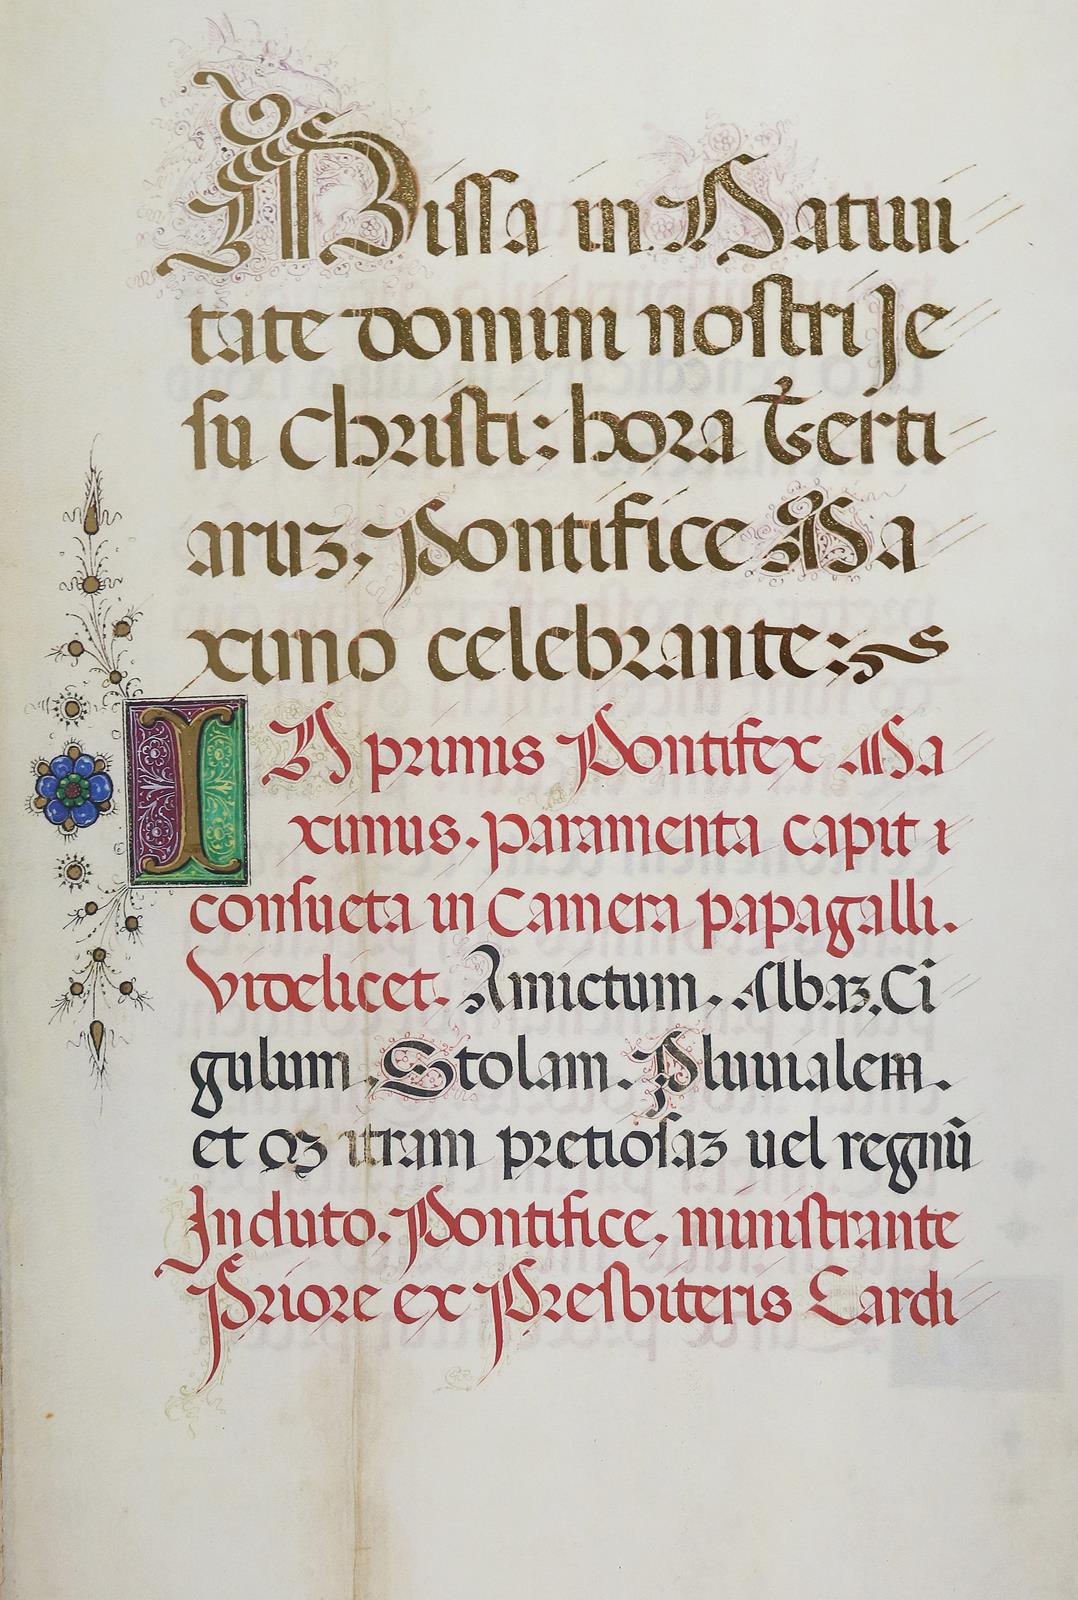 Missa in Natiui
tate domini nostri Je
su Christi: hora Terti
aruꝫ. Pontifice Ma
ximo celebrante:
IN primis Pontifex Ma
ximus. paramenta capit i
consueta in Camera papagalli.
Videlicet. Amictum. Albaꝫ. Ci
gulum. Stolam. Pluuialem.
et itram pretiosaꝫ uel regnū
Induto. Pontifice. ministrante
Priore ex Presbiteris Cardi